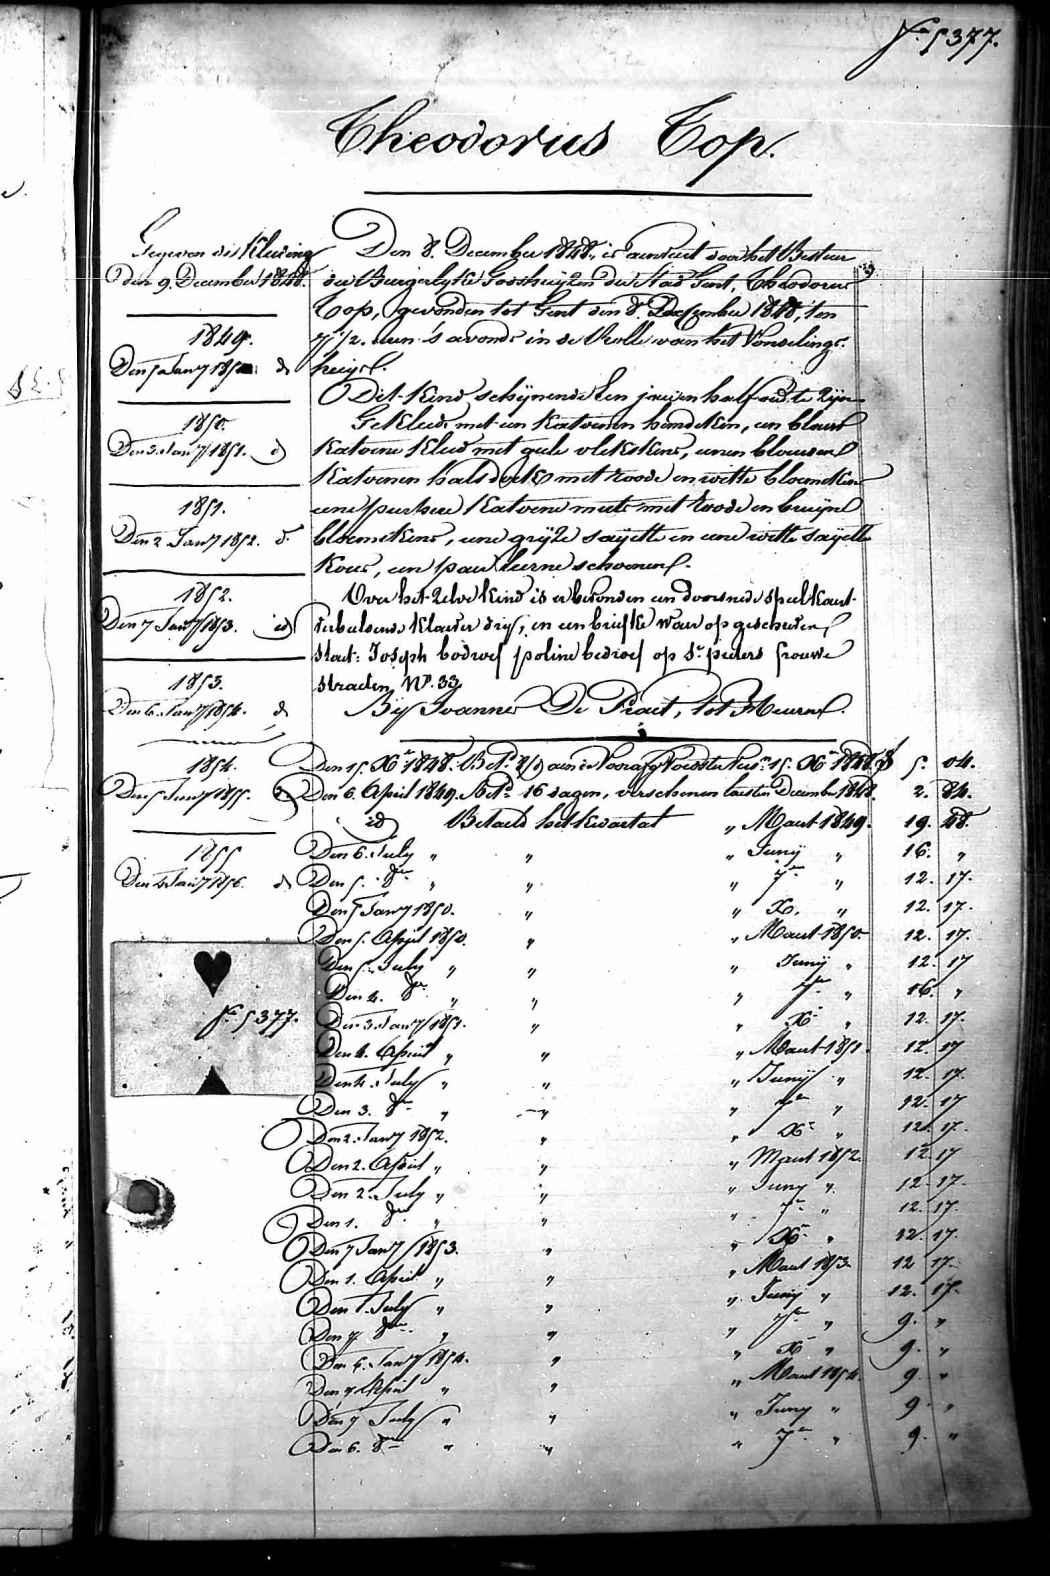 N° 5377.
Theodorus Top.
Gegeven die Kleeding
den 9. December 1848.
1849.
Den 5 Jany 185 d
1850.
Den 3. Jany 1851. d
1851.
Den 2 Jany 1852. d.
1852.
Den 7 Jany 1853. id
1853.
Den 6. Jany 1854. d
1854.
Den 5 Jany 1855. d
1855
Den 4 Jany 1856. d
N° 5377.
Den 8. December 1848, is aenveert door het Bestuer
der Burgerlyke Godshuyzen der Stad Gent, Theodorus
Top, gevonden tot Gent den 8. December 1848, ten
7 1/2. uren 's avonds in de Rolle van het Vondelings-
huys.
Dit kind schynende een jaer en half oud te zyn
Gekleed met een katoenen hemdeken, een blauw
katoene kleed met gele vlekskens, eenen blauwen
katoenen halsdoek met roode en witte bloemekens
eene katoene muts met roode en bruyne
bloemekens, eene gryze sayette en eene witte sayette
kous, een paer leerne schoenen.
Over het zelve kind is er bevonden een doorsnede speelkaert
verbeldende klaver dry, en een briefke waer op geschreven
staet: Joseph bodroef poline bedroef op st. pieters frouwe
straeten N°. 33
By Joannes De Praet, tot Meuren.
Den 15. Xr 1848. Bet. aen de Voorzorg Voedster 15. Xr 1848. f 5. 04.
Den 6. April 1849. Bet. 16 dagen, verschenen laesten December 1848. 2. 84.
id Betaeld het kwartael " Maert 1849. 19. 48.
Den 6. July " " " Juny " 16. "
Den 5. 8re " " " 7re " 12. 17.
Den 5 Jany 1850. " " X. " 12. 17.
Den 5. April 1850. " " Maert 1850. 12. 17.
Den 5. July " " " Juny " 12. 17
Den 4. 8re " " " 7re " 16. "
Den 3. Jany 1851. " " Xr " 12. 17.
Den 4. April " " " Maert 1851. 12. 17
Den 4. July " " " Juny " 12. 17.
Den 3. 8re " " " 7re " 12. 17
Den 2. Jany 1852. " " Xr " 12. 17.
Den 2. April " " " Maert 1852. 12. 17
Den 2. July " " " Juny " 12. 17.
Den 1. 8re " " " 7re " 12. 17.
Den 7 Jany 1853. " " Xr " 12. 17.
Den 1. April " " " Maert 1853. 12 17.
Den 1. July " " " Juny " 12. 17.
Den 7. 8re " " " 7re " 9. "
Den 6. Jany 1854. " " Xr " 9. "
Den 7 April " " " Maert 1854. 9. "
Den 7 July " " " Juny " 9. "
Den 6. 8re " " " 7re " 9. "